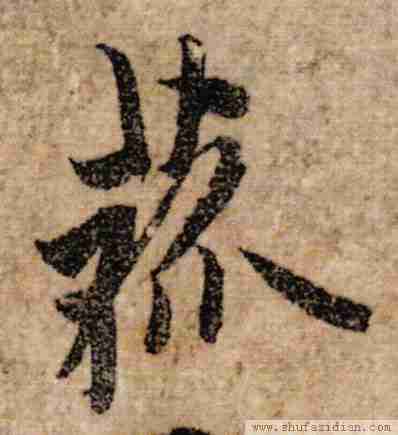 菰
www.shufazidian.com